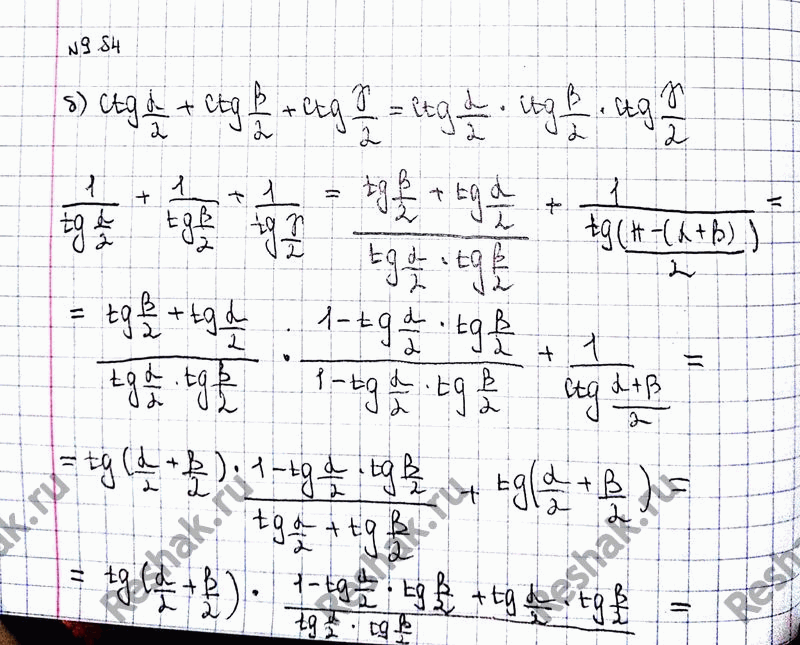 №9 84
б) ctg α/2 + ctg β/2 + ctg γ/2 = ctg α/2 · ctg β/2 · ctg γ/2
1/(tg α/2) + 1/(tg β/2) + 1/(tg γ/2) = (tg β/2 + tg α/2)/(tg α/2 · tg β/2) + 1/(tg (π-(α+β))/2) =
= (tg β/2 + tg α/2)/(tg α/2 · tg β/2) · (1 - tg α/2 · tg β/2)/(1 - tg α/2 · tg β/2) + 1/(ctg (α+β)/2) =
= tg(α/2 + β/2) · (1 - tg α/2 · tg β/2)/(tg α/2 + tg β/2) + tg(α/2 + β/2) =
= tg(α/2 + β/2) · (1 - tg α/2 · tg β/2 + tg α/2 · tg β/2)/(tg α/2 · tg β/2) =
Reshak.ru
Reshak.ru
Reshak.ru
Reshak.ru